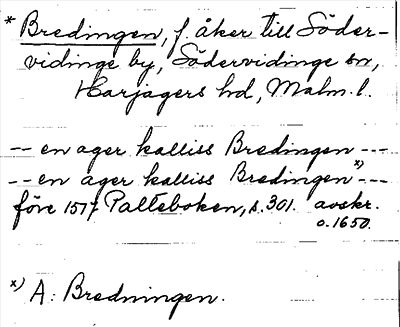 * Bredingen, f. åker till Söder-
vidinge by, Södervidinge sn,
Harjagers hd, Malm. l.
-- en ager kalliss Bredingen ---
-- en ager kalliss Bredingen x) ---
före 1517 Palteboken, s. 301. avskr.
o. 1650.
x) A: Bredningen.